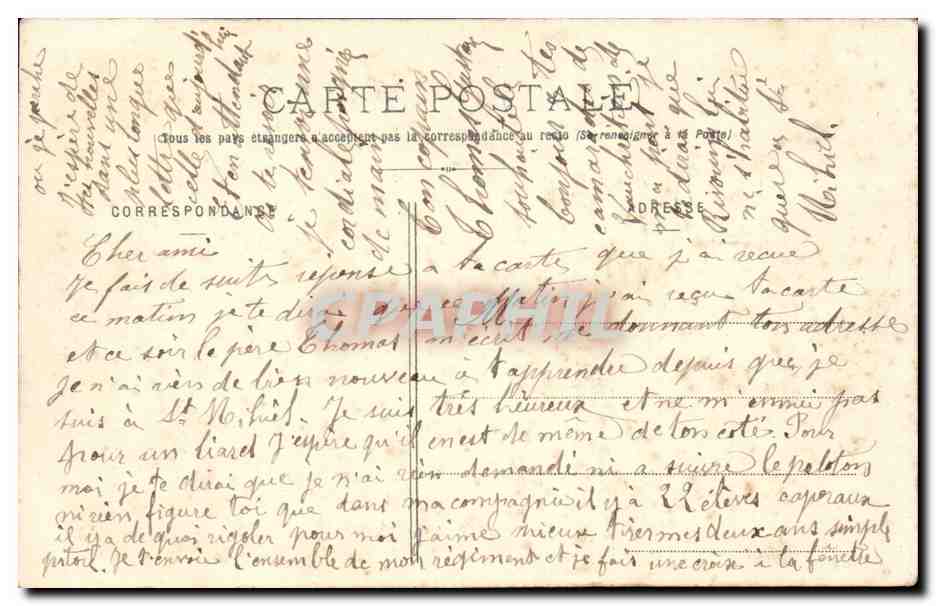 CARTE POSTALE
Tous les pays étrangers n'acceptent pas la correspondance au recto (Se renseigner à la Poste)
CORRESPONDANCE
ADRESSE
Cher ami
Je fais de suite réponse à ta carte que j'ai reçue
ce matin je te dirai que ce Matin j'ai reçu ta carte
et ce soir le père Thomas m'écrit me donnant ton adresse
Je n'ai rien de bien nouveau à t'apprendre depuis que je
suis à St Mihiel. Je suis très heureux et ne m'ennuie pas
pour un liard J'espère qu'il en est de même de ton coté Pour
moi je te dirai que je n'ai rien demandé ni a suivre le peloton
ni rien, figure toi que dans ma compagnie il y a 22 élèves caporaux
il y a de quoi rigoler pour moi j'aime mieux tirer mes deux ans simple
pitou. Je t'envoie l'ensemble de mon régiment et je fais une croix à la fenêtre
ou je perche
J'espère de
tes nouvelles
dans une
plus longue
lettre que
celle
d'en attendant
je te serre
cordialement
de main
Ton copain
Thomas
bonjour
camarades
je
te dirai que
guère St
Mihiel.
CPAPHIL